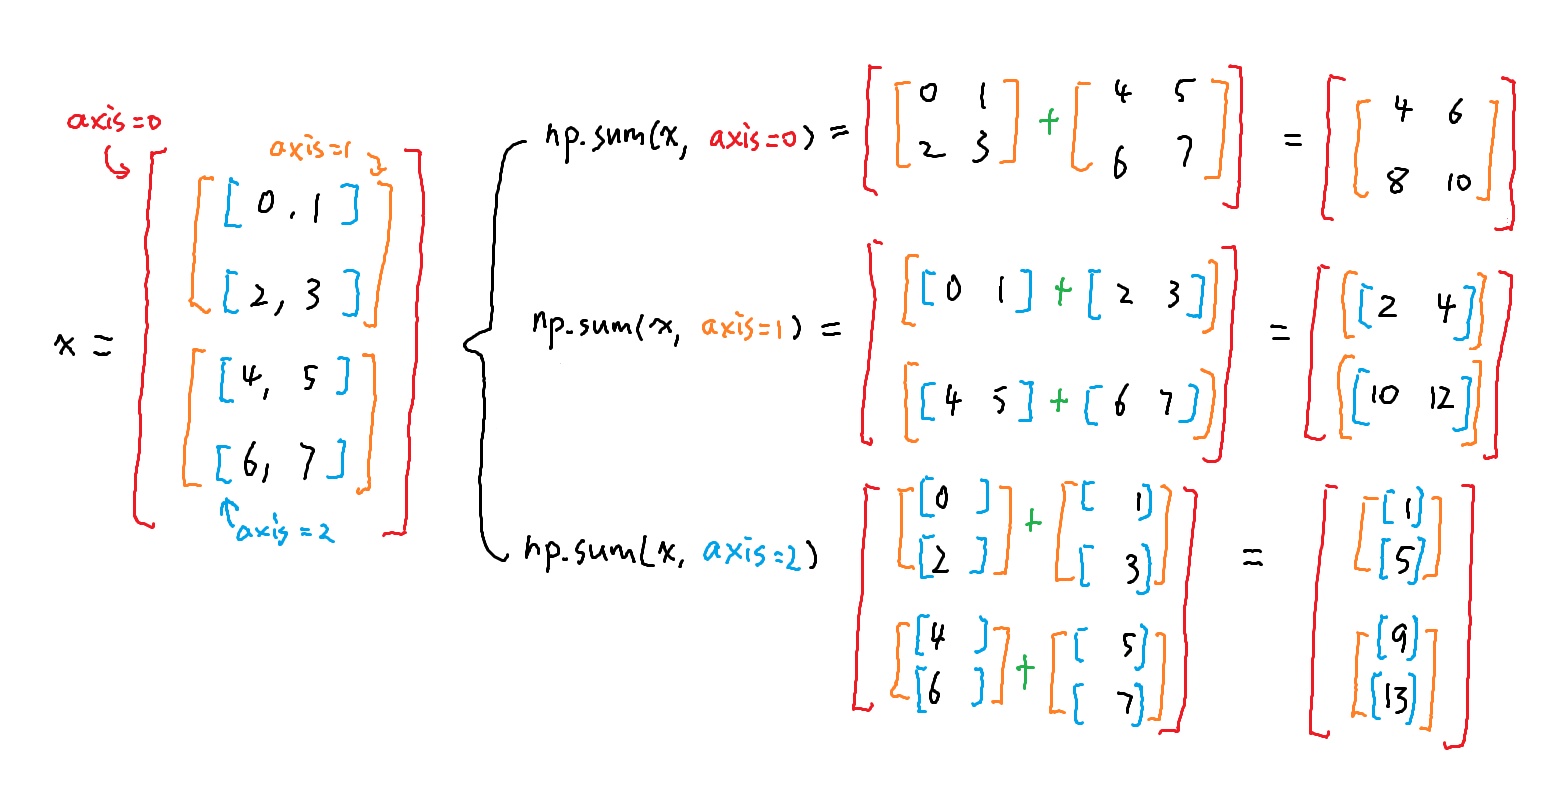 axis=0
axis=1
x = [ [ [ 0 , 1 ]
[ 2 , 3 ] ]
[ [ 4, 5 ]
[ 6, 7 ] ] ]
axis=2
np.sum(x, axis=0) = [ [ 0 1
2 3 ] + [ 4 5
6 7 ] ] = [ [ 4 6
8 10 ] ]
np.sum(x, axis=1) = [ [ [ 0 1 ] + [ 2 3 ] ]
[ [ 4 5 ] + [ 6 7 ] ] ] = [ [ [ 2 4 ] ]
[ [ 10 12 ] ] ]
np.sum(x, axis=2) [ [ [ 0 ]
[ 2 ] ] + [ [ 1 ]
[ 3 ] ]
[ [ 4 ]
[ 6 ] ] + [ [ 5 ]
[ 7 ] ] ] = [ [ [ 1 ]
[ 5 ] ]
[ [ 9 ]
[ 13 ] ] ]